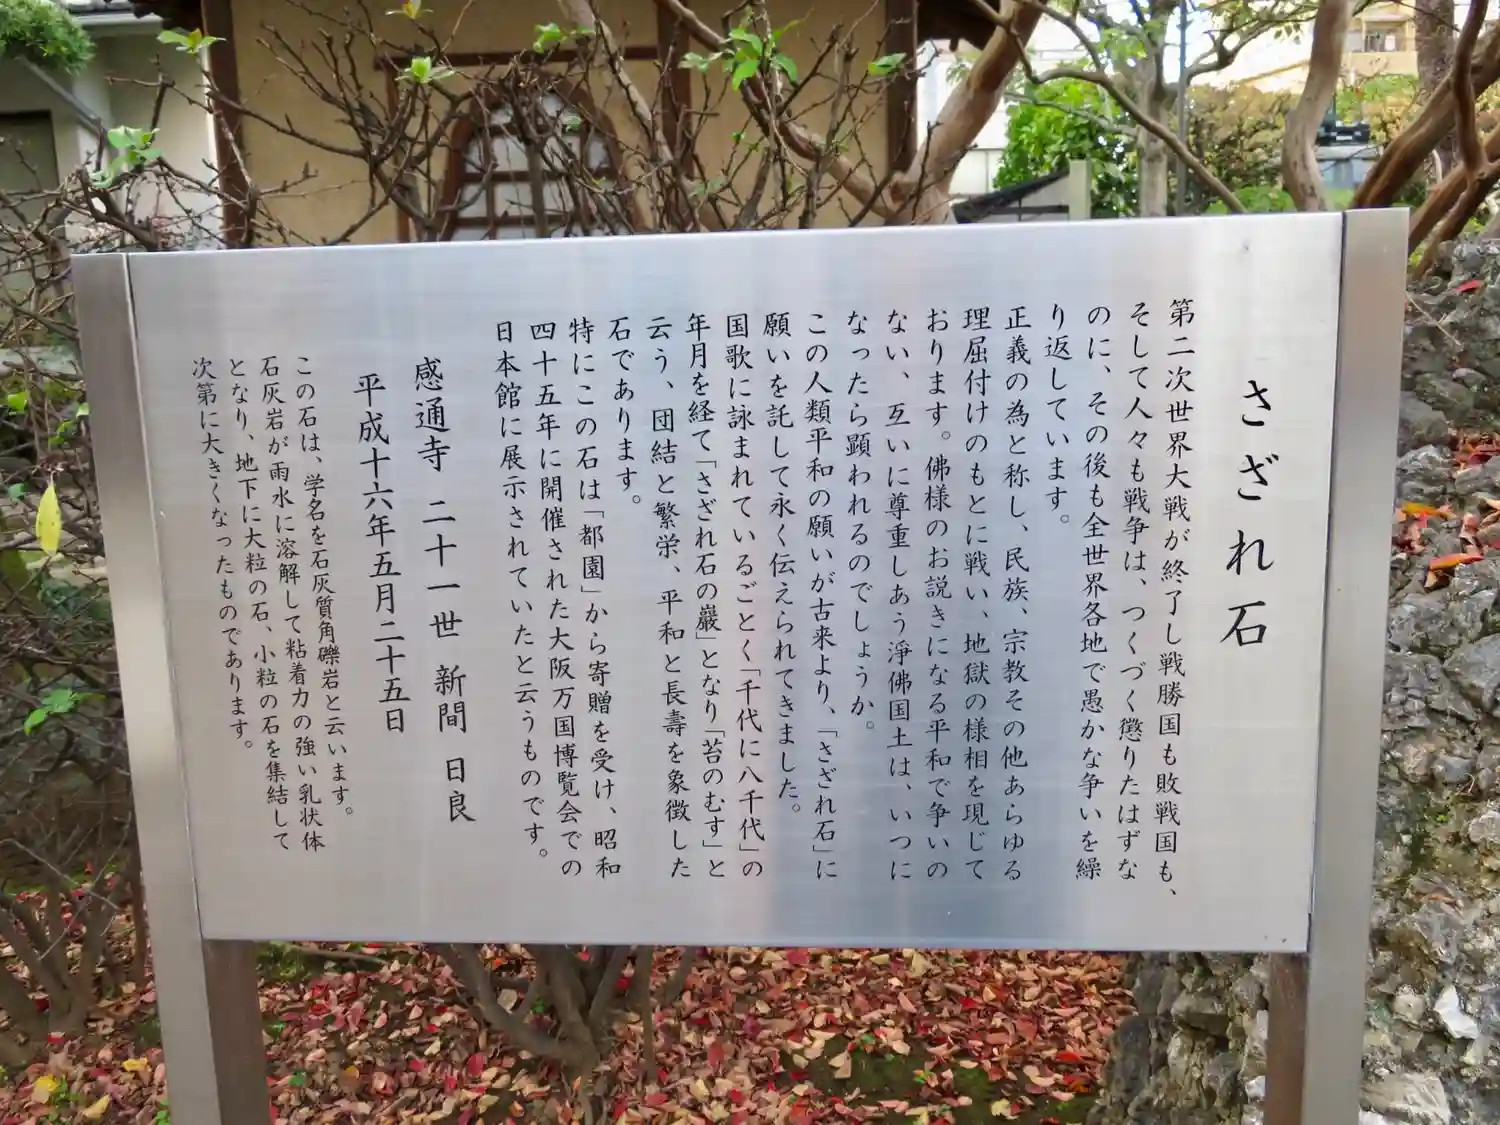 さざれ石
第二次世界大戦が終了し戦勝国も敗戦国も、
そして人々も戦争は、つくづく懲りたはずな
のに、その後も全世界各地で愚かな争いを繰
り返しています。
正義の為と称し、民族、宗教その他あらゆる
理屈付けのもとに戦い、地獄の様相を現じて
おります。佛様のお説きになる平和で争いの
ない、互いに尊重しあう淨佛国土は、いつに
なったら顕われるのでしょうか。
この人類平和の願いが古来より、「さざれ石」に
願いを託して永く伝えられてきました。
国歌に詠まれているごとく「千代に八千代」の
年月を経て「さざれ石の巖」となり「苔のむす」と
云う、団結と繁栄、平和と長壽を象徴した
石であります。
特にこの石は「都園」から寄贈を受け、昭和
四十五年に開催された大阪万国博覧会での
日本館に展示されていたと云うものです。
感通寺 二十一世 新間 日良
平成十六年五月二十五日
この石は、学名を石灰質角礫岩と云います。
石灰岩が雨水に溶解して粘着力の強い乳状体
となり、地下に大粒の石、小粒の石を集結して
次第に大きくなったものであります。